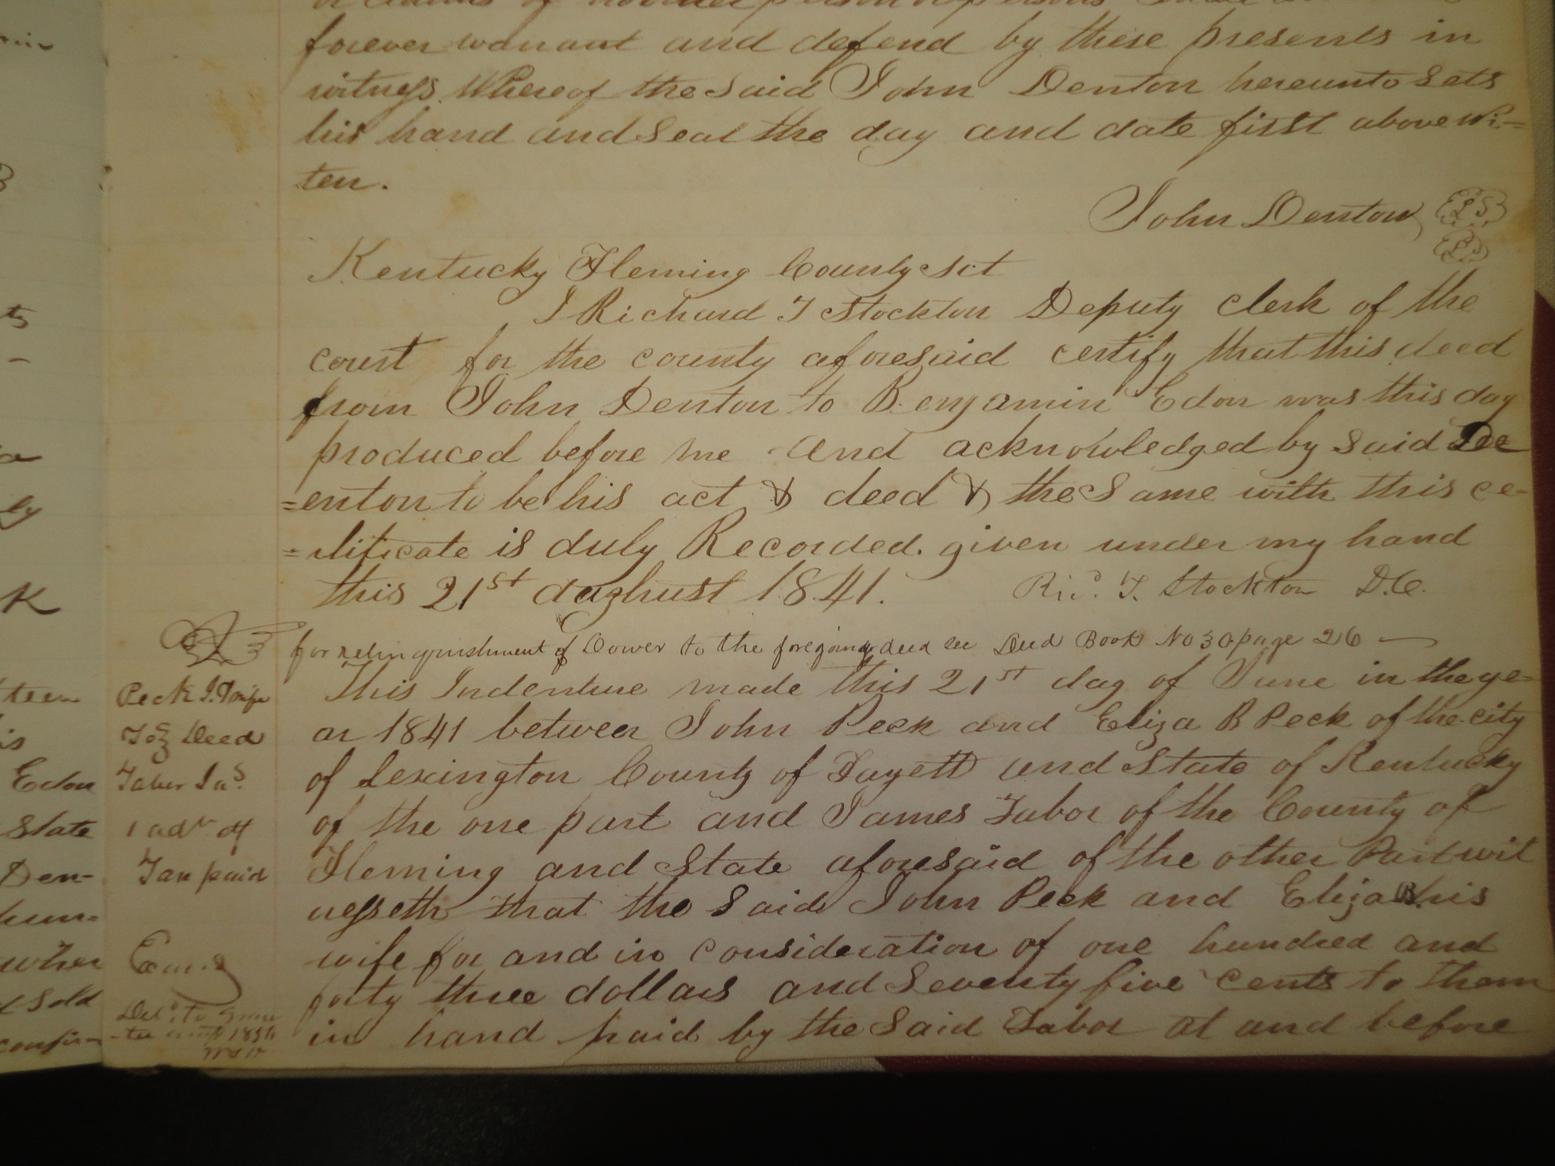 forever warrant and defend by these presents in
witness Whereof the Said John Denton hereunto Sets
his hand and Seal the day and date first above wri=
ten.
John Denton LS
LS
Kentucky Fleming County Sct
I Richard T Stockton Deputy clerk of the
court for the county aforesaid certify that this deed
from John Denton to Benjamin Edon was this day
produced before me and acknowledged by Said De
=enton to be his act & deed & the Same with this ce-
=rtificate is duly Recorded. given under my hand
this 21st dayghust 1841. Ric.d T. Stockton D.C.
for relinquishment of Dower to the foregoing deed see Deed Book No 30 page 26
Peck J. & wife
To Deed
Tabor Jas
1 adt of
Tax paid
Exmd
Deld to Gran
tee 1854
This Indenture made this 21st day of June in the ye=
ar 1841 between John Peck and Eliza B Peck of the city
of Lexington County of Fayett and State of Kentucky
of the one part and James Tabor of the County of
Fleming and State aforesaid of the other Part wit
nesseth that the Said John Peck and Eliza B his
wife for and in consideration of one hundred and
forty three dollars and Seventy five cents to them
in hand paid by the Said Tabor at and before
K
teen
is
Edon
State
Den-
hun=
when
& Sold
confir-